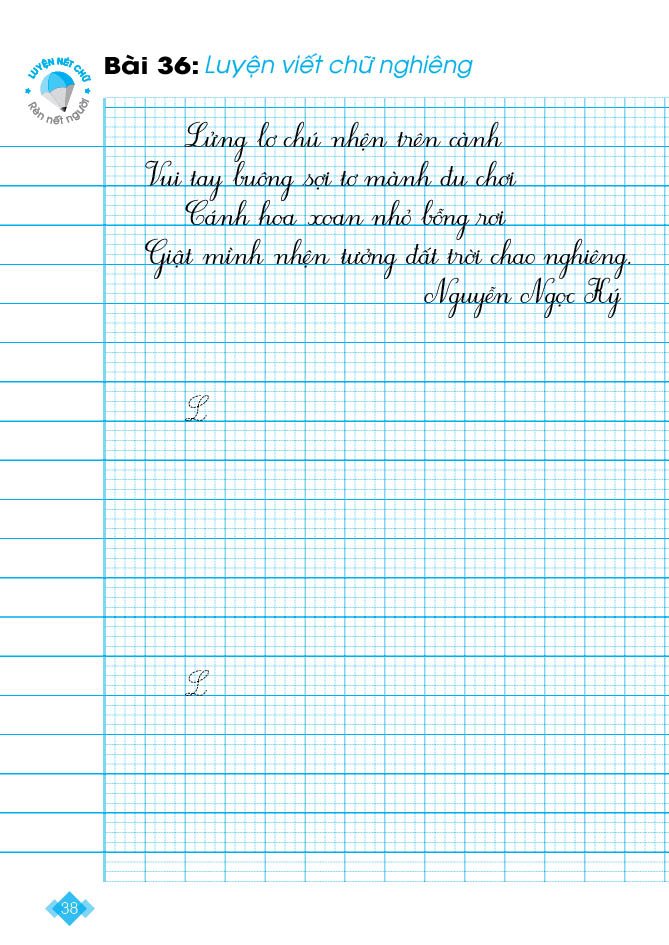 LUYỆN NÉT CHỮ
Rèn nết người
Bài 36: Luyện viết chữ nghiêng
Lửng lơ chú nhện trên cành
Vui tay buông sợi tơ mành đu chơi
Cánh hoa xoan nhỏ bỗng rơi
Giật mình nhện tưởng đất trời chao nghiêng.
Nguyễn Ngọc Ký
L
L
38